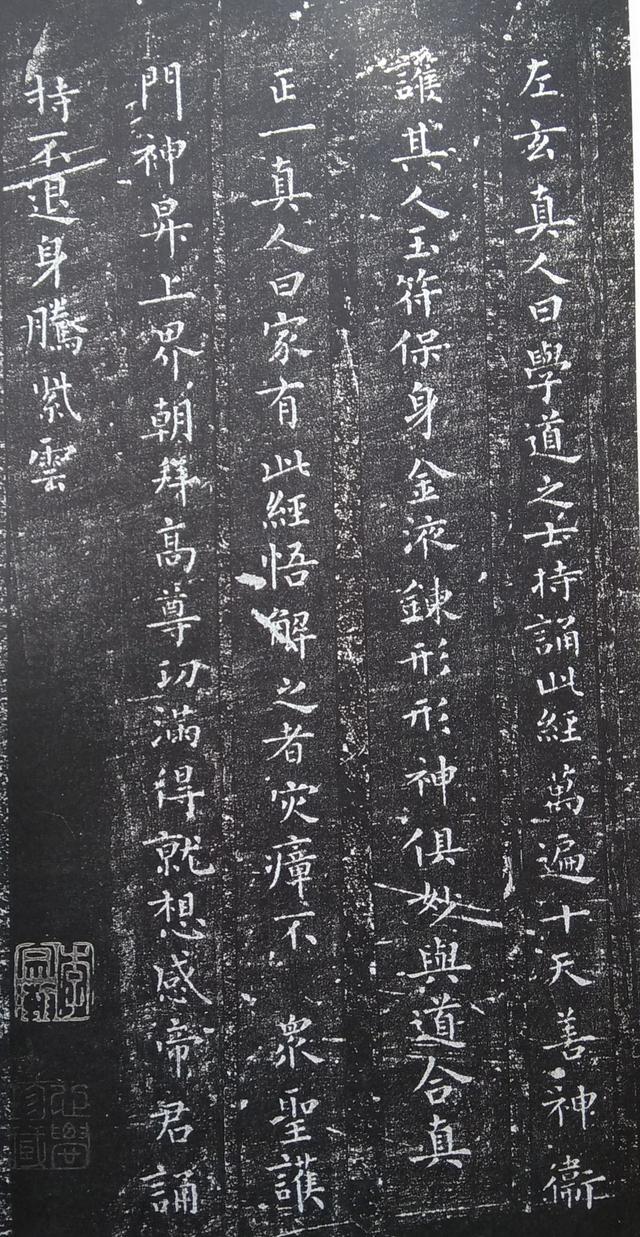 左玄真人曰學道之士持誦此經萬遍十天善神衛
護其人玉符保身金液鍊形形神俱妙與道合真
正一真人曰家有此經悟解之者灾瘴不 衆聖護
門神昇上界朝拜高尊功滿得就想感帝君誦
持不退身騰紫雲